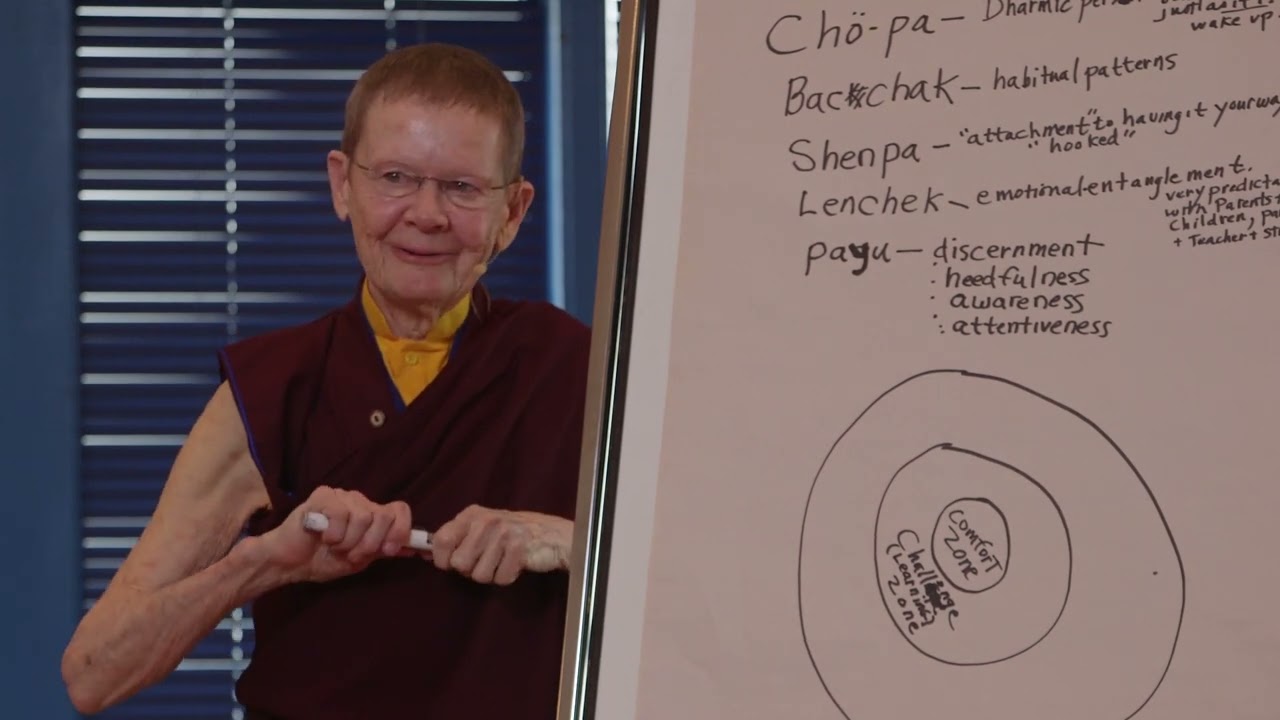 Chö-pa — Dharmic
just as it i
wake up.
Backchak — habitual patterns
Shenpa — "attachment" to having it your way
"hooked"
Lenchek — emotional-entanglement.
very predicta
with Parents +
Children, pa
+ Teacher + St
payu — discernment
: heedfulness
· awareness
: attentiveness
Comfort
Zone
Challenge
(Learning)
Zone